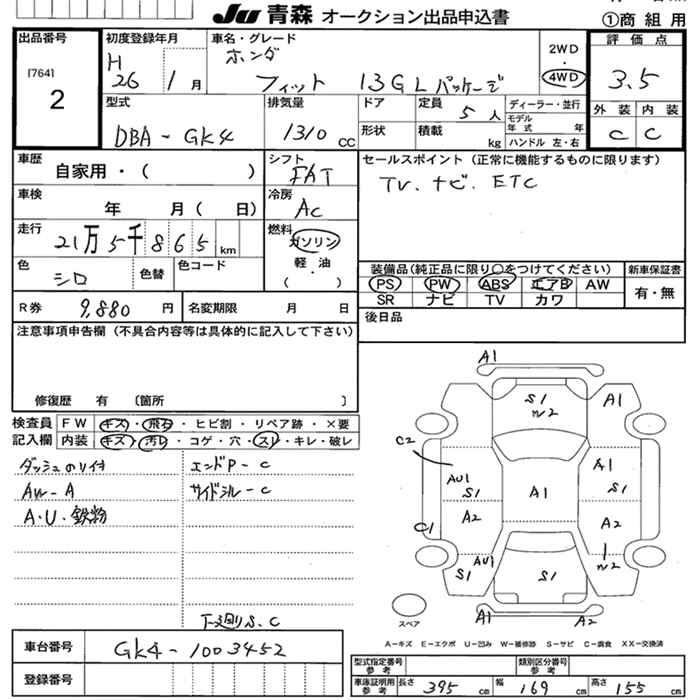 JU 青森 オークション出品申込書
①商組用
出品番号
[764]
2
初度登録年月
H 26 / 1 月
車名・グレード
ホンダ
フィット 13G Lパッケージ
2WD
・
4WD
評価点
3.5
外装 内装
C C
型式
DBA-GK4
排気量
1310 CC
ドア
形状
定員 5 人
積載 kg
ディーラー・並行
モデル年式 年
ハンドル 左・右
車歴
自家用・( )
シフト
FAT
セールスポイント (正常に機能するものに限ります)
TV. ナビ. ETC
車検
年 月( 日)
冷房
AC
走行
21万5千865 km
燃料
ガソリン
軽油
( ・ )
色
シロ
色替
色コード
装備品(純正品に限り○をつけてください)
PS PW ABS エアB AW
SR ナビ TV カワ
新車保証書
有・無
R券 9,880 円
名変期限 月 日
後日品
注意事項申告欄 (不具合内容等は具体的に記入して下さい)
修復歴 有 〔箇所 〕
検査員記入欄
FW キズ・飛石・ヒビ割・リペア跡・×要
内装 キズ・汚レ・コゲ・穴・スレ・キレ・破レ
ダッシュのり付
エンドP-C
AW-A
サイドシル-C
A・U・鉄粉
下廻りS.C
A1
S1
W2
A1
C2
AU1
S1
A1
A1
S1
C1
A2
A2
W2
AU1
S1
S1
A1
A2
スペア
A-キズ E-エクボ U-凹み W-補修跡 S-サビ C-腐食 XX-交換済
車台番号 GK4-1003452
登録番号
型式指定番号 参考
類別区分番号 参考
車庫証明用 参考
長さ 395 cm 幅 169 cm 高さ 155 cm